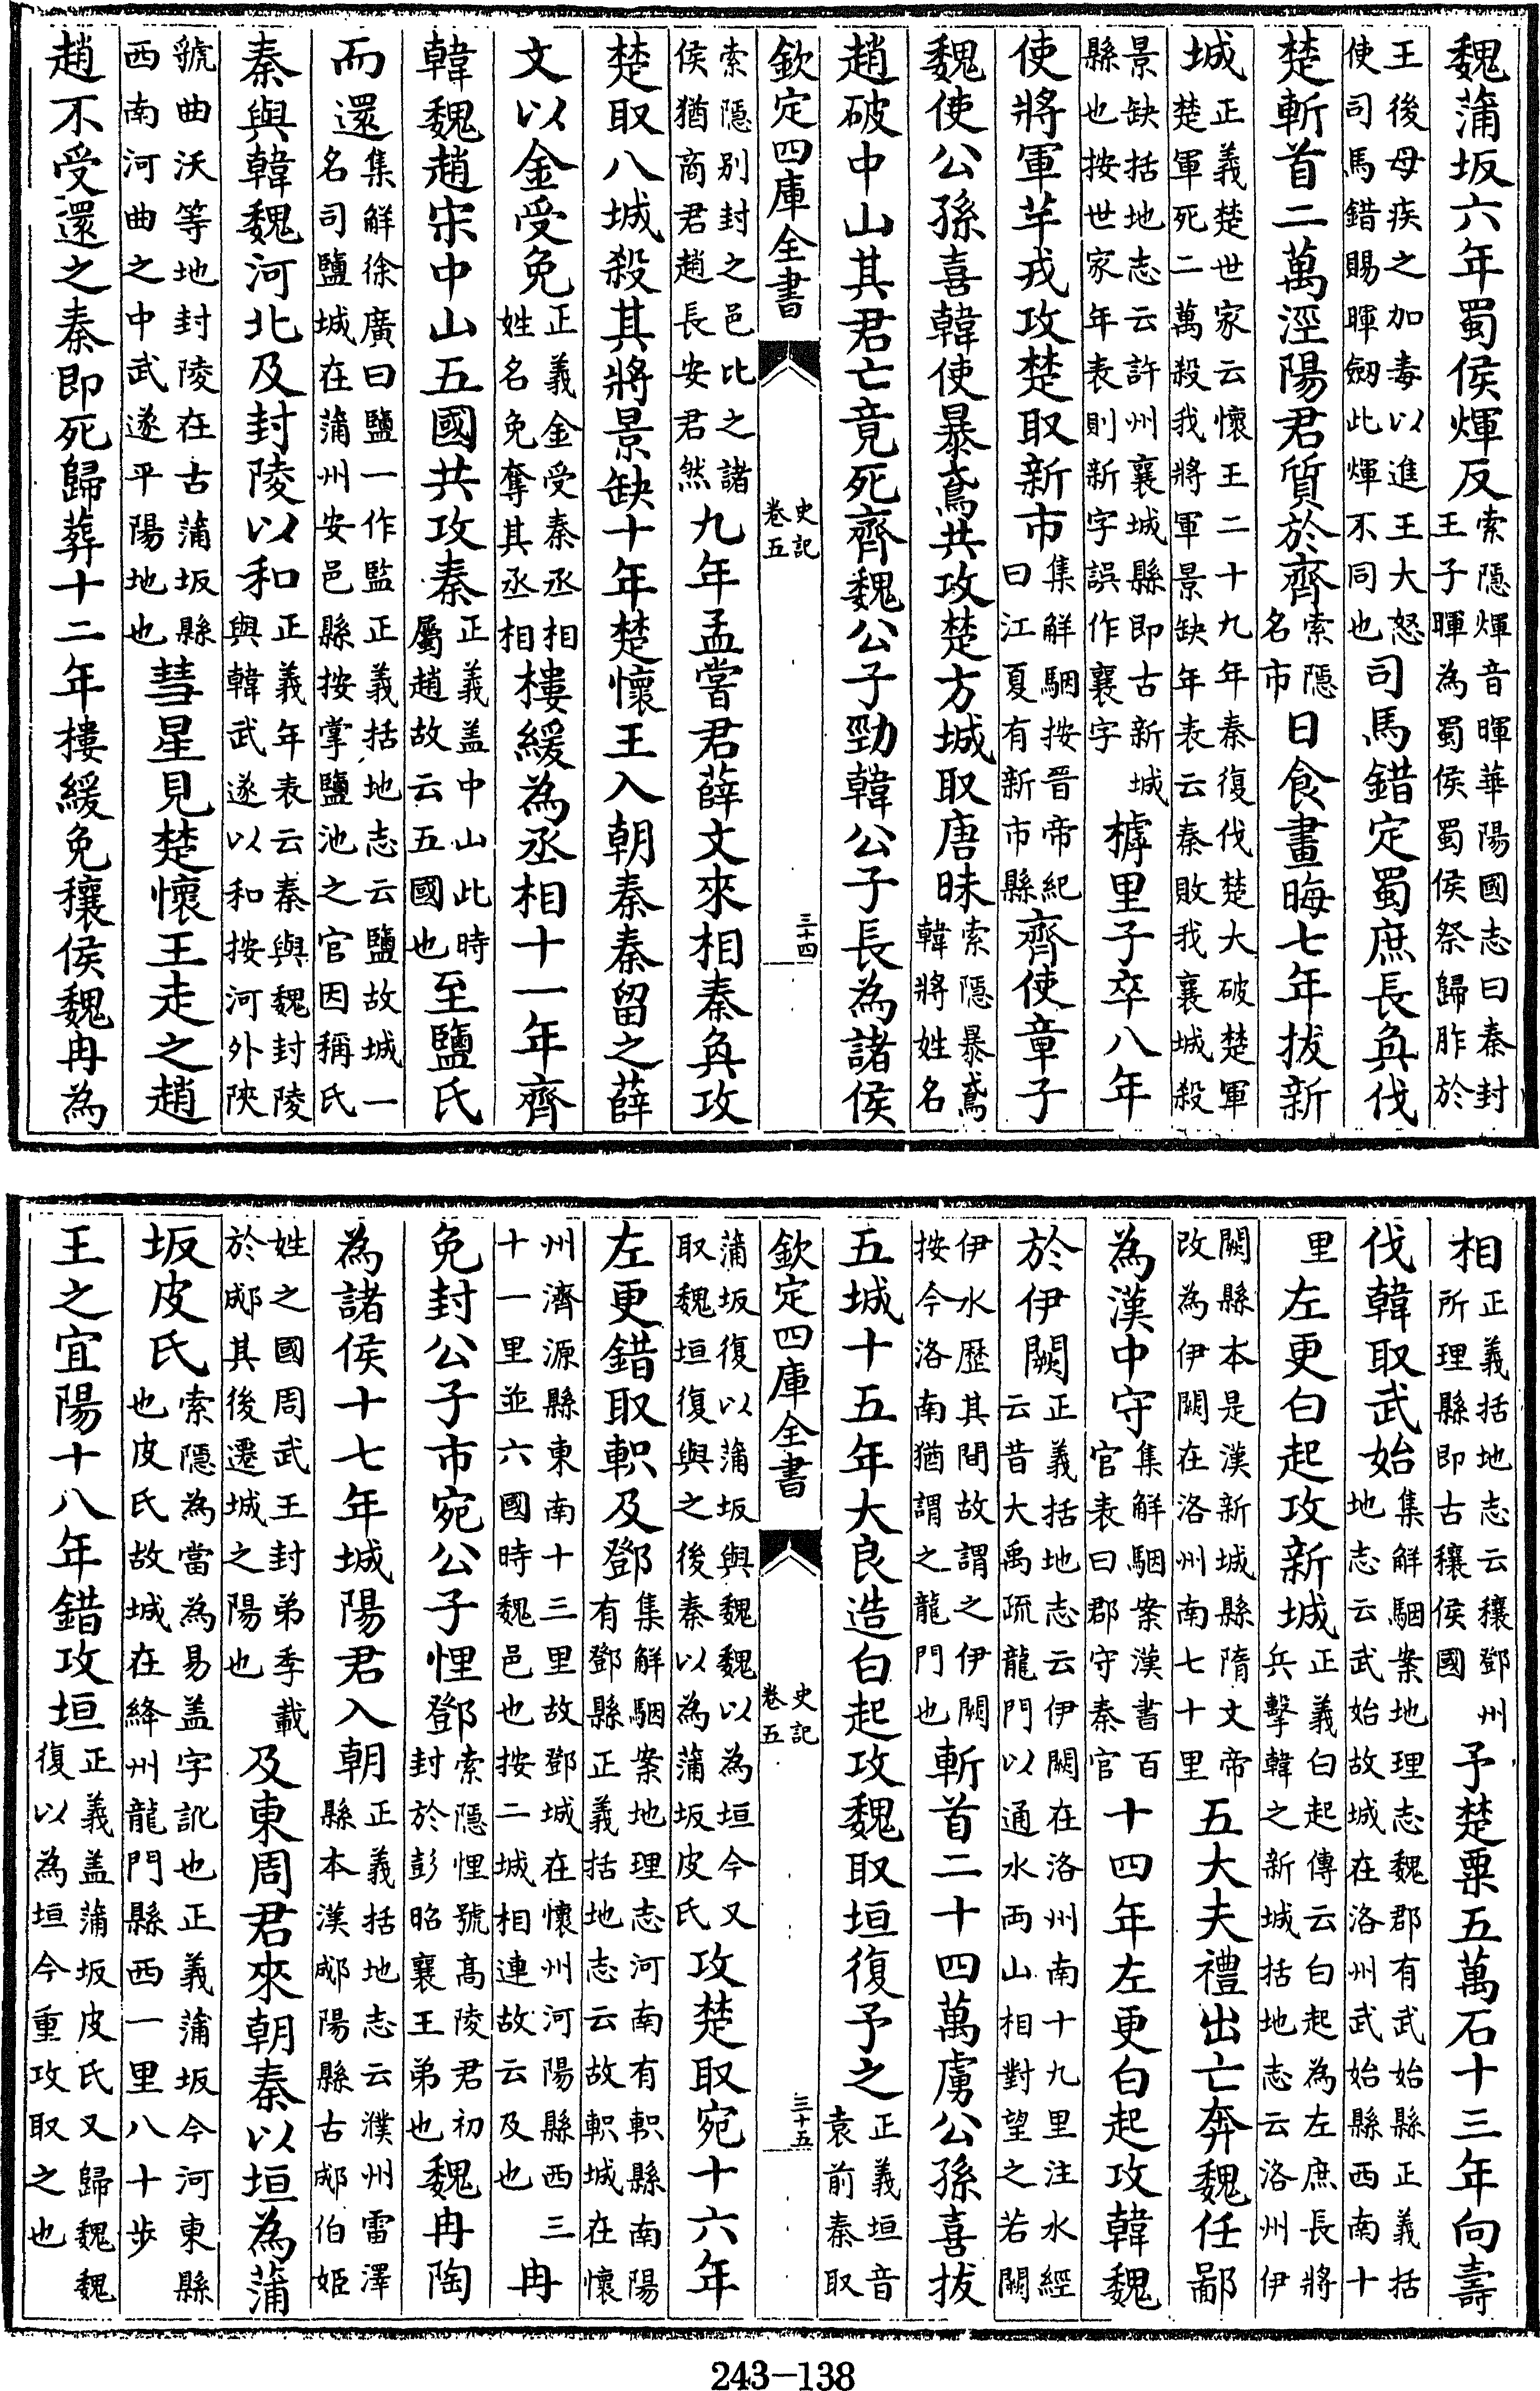 魏蒲坂六年蜀侯煇反索隠煇音暉華陽國志曰秦封王子暉為蜀侯蜀侯祭歸胙於
王後母疾之加毒以進王大怒使司馬錯賜暉劔此煇不同也司馬錯定蜀庶長奐伐
楚斬首二萬涇陽君質於齊索隠名市日食晝晦七年拔新
城正義楚世家云懷王二十九年秦復伐楚大破楚軍楚軍死二萬殺我將軍景缺年表云秦敗我襄城殺
景缺括地志云許州襄城縣即古新城縣也按世家年表則新字誤作襄字樗里子卒八年
使將軍芉戎攻楚取新市集解駰按晉帝紀曰江夏有新市縣齊使章子
魏使公孫喜韓使暴鳶共攻楚方城取唐昧索隠暴鳶韓將姓名
趙破中山其君亡竟死齊魏公子勁韓公子長為諸侯
欽定四庫全書 史記卷五 三十四
索隠别封之邑比之諸侯猶商君趙長安君然九年孟嘗君薛文來相秦奐攻
楚取八城殺其將景缺十年楚懷王入朝秦秦留之薛
文以金受免正義金受秦丞相姓名免奪其丞相樓緩為丞相十一年齊
韓魏趙宋中山五國共攻秦正義盖中山此時屬趙故云五國也至鹽氏
而還集解徐廣曰鹽一作監正義括地志云鹽故城一名司鹽城在蒲州安邑縣按掌鹽池之官因稱氏
秦與韓魏河北及封陵以和正義年表云秦與魏封陵與韓武遂以和按河外陜
虢曲沃等地封陵在古蒲坂縣西南河曲之中武遂平陽地也彗星見楚懷王走之趙
趙不受還之秦即死歸葬十二年樓緩免穰侯魏冉為
相正義括地志云穰鄧州所理縣即古穰侯國予楚粟五萬石十三年向壽
伐韓取武始集解駰案地理志魏郡有武始縣正義括地志云武始故城在洛州武始縣西南十
里左更白起攻新城正義白起傳云白起為左庶長將兵擊韓之新城括地志云洛州伊
闕縣本是漢新城縣隋文帝改為伊闕在洛州南七十里五大夫禮出亡奔魏任鄙
為漢中守集解駰案漢書百官表曰郡守秦官十四年左更白起攻韓魏
於伊闕正義括地志云伊闕在洛州南十九里注水經云昔大禹疏龍門以通水両山相對望之若闕
伊水歴其間故謂之伊闕按今洛南猶謂之龍門也斬首二十四萬虜公孫喜拔
五城十五年大良造白起攻魏取垣復予之正義垣音袁前秦取
欽定四庫全書 史記卷五 三十五
蒲坂復以蒲坂與魏魏以為垣今又取魏垣復與之後秦以為蒲坂皮氏攻楚取宛十六年
左更錯取軹及鄧集解駰案地理志河南有軹縣南陽有鄧縣正義括地志云故軹城在懷
州濟源縣東南十三里故鄧城在懷州河陽縣西三十一里並六國時魏邑也按二城相連故云及也冉
免封公子市宛公子悝鄧索隠悝號髙陵君初封於彭昭襄王弟也魏冉陶
為諸侯十七年城陽君入朝正義括地志云濮州雷澤縣本漢郕陽縣古郕伯姬
姓之國周武王封弟季載於郕其後遷城之陽也及東周君來朝秦以垣為蒲
坂皮氏索隠為當為易盖字訛也正義蒲坂今河東縣也皮氏故城在絳州龍門縣西一里八十步
王之宜陽十八年錯攻垣正義盖蒲坂皮氏又歸魏魏復以為垣今重攻取之也
243-138